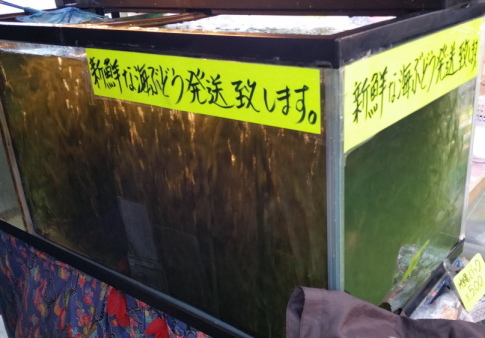 新鮮な海ぶどう発送致します。
新鮮な海ぶどう発送致します